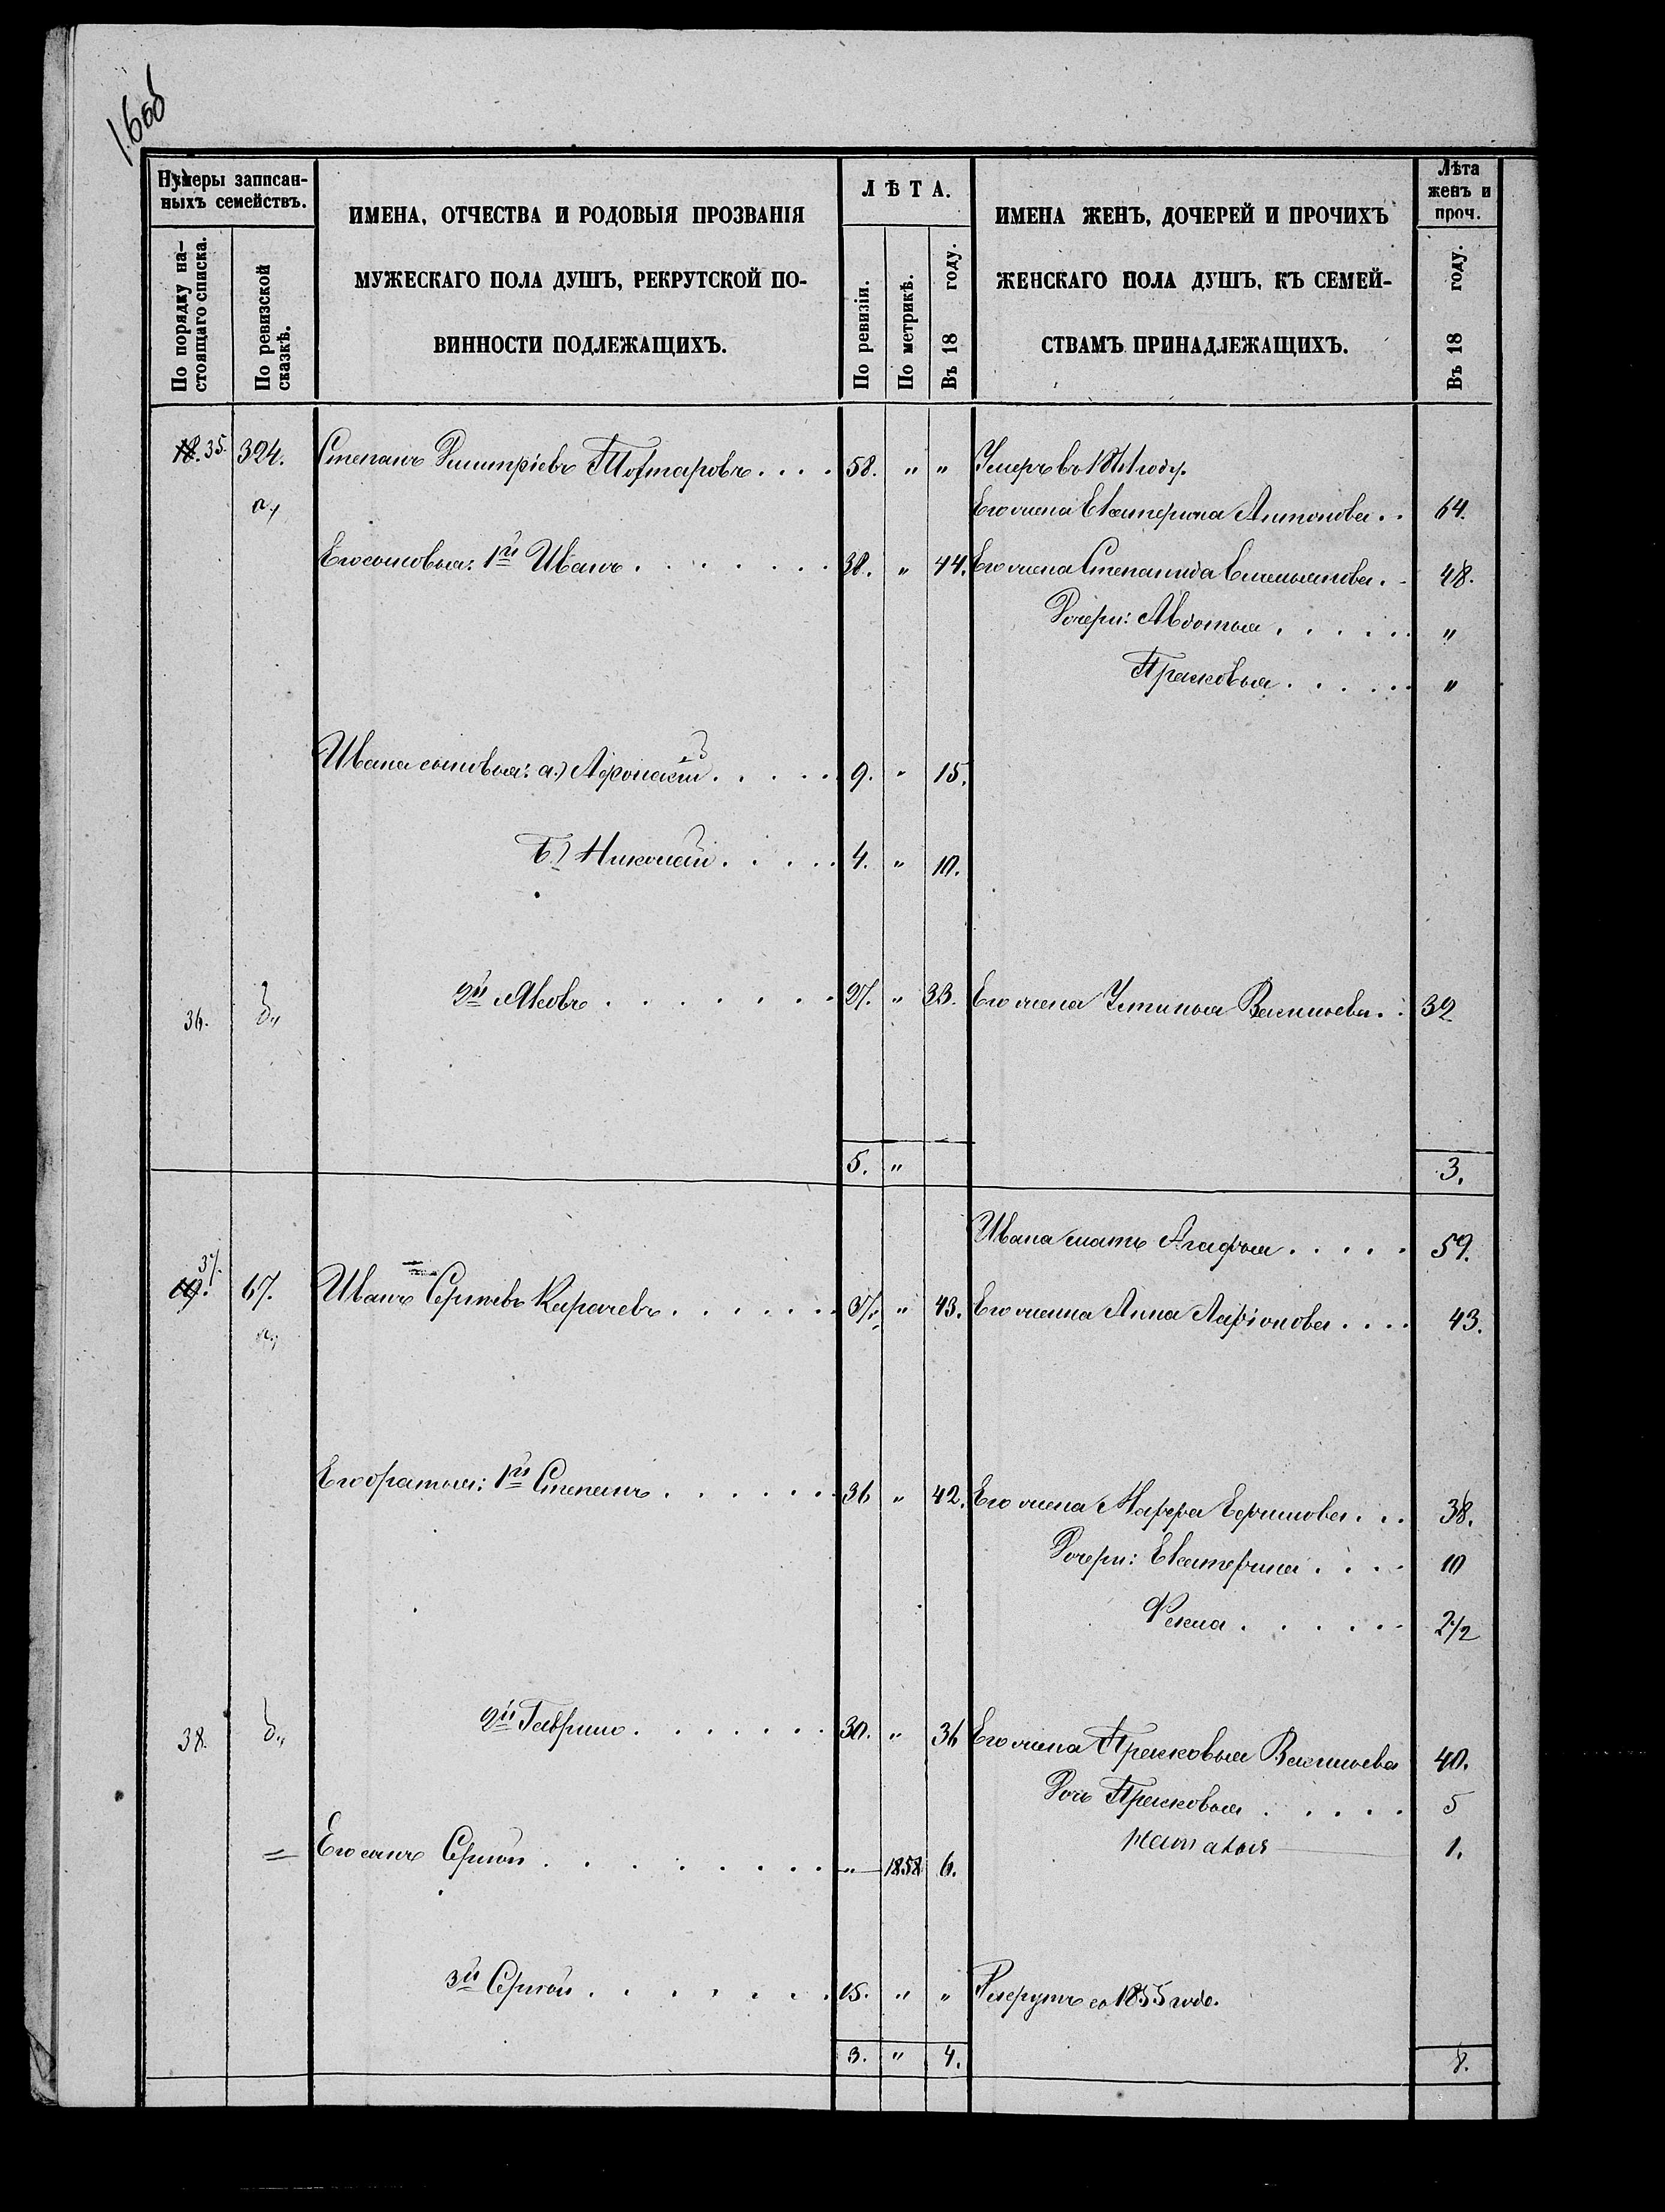 16об
Нумеры записан-
ныхъ семействъ.
По порядку на-
стоящаго списка.
По ревизской
сказкѣ.
ИМЕНА, ОТЧЕСТВА И РОДОВЫЯ ПРОЗВАНІЯ
МУЖЕСКАГО ПОЛА ДУШЪ, РЕКРУТСКОЙ ПО-
ВИННОСТИ ПОДЛЕЖАЩИХЪ.
ЛѢТА.
По ревизіи.
По метрикѣ.
Въ 18 году.
ИМЕНА ЖЕНЪ, ДОЧЕРЕЙ И ПРОЧИХЪ
ЖЕНСКАГО ПОЛА ДУШЪ, КЪ СЕМЕЙ-
СТВАМЪ ПРИНАДЛЕЖАЩИХЪ.
Лѣта
женъ и
проч.
Въ 18 году.
18. 35. 324. Степанъ Дмитріевъ 58. " " Умеръ въ году.
а., Его жена Екатерина Антонова . . 64.
Его сыновья: 1й Иванъ . . . . . . . 38. " 44. Его жена Степанида Емельянова . . 48.
Дочери: Авдотья . . . . . . "
Прасковья . . . . . "
Ивана сыновья: а.) Афонасій . . . . . 9. " 15.
б.) Николай . . . . . 4. " 10.
36. б., 2й Яковъ . . . . . . . 27. " 33. Его жена Устинья Васильева . . 32
5. " 3.
Ивана мать Агафья . . . . . 59.
19. 37. 67. Иванъ Сергѣевъ Карачевъ . . . . . . 37. " 43. Его жена Анна Ларіонова . . . . 43.
а.,
Его братья: 1й Степанъ . . . . . . 36 " 42. Его жена Марфа Ефимова . . . 38.
Дочери: Екатерина . . . . 10
Фекла . . . . . . 2 1/2
38. б., 2й Гаврило . . . . . . 30. " 36 Его жена Прасковья Васильева 40.
Дочь Прасковья . . . . . 5
= Его сынъ Сергѣй . . . . . . . . . " 1858 6. Наталья 1.
3й Сергѣй . . . . . . . 15. " " Рекрутъ съ 1855 года.
3. " 4. 8.